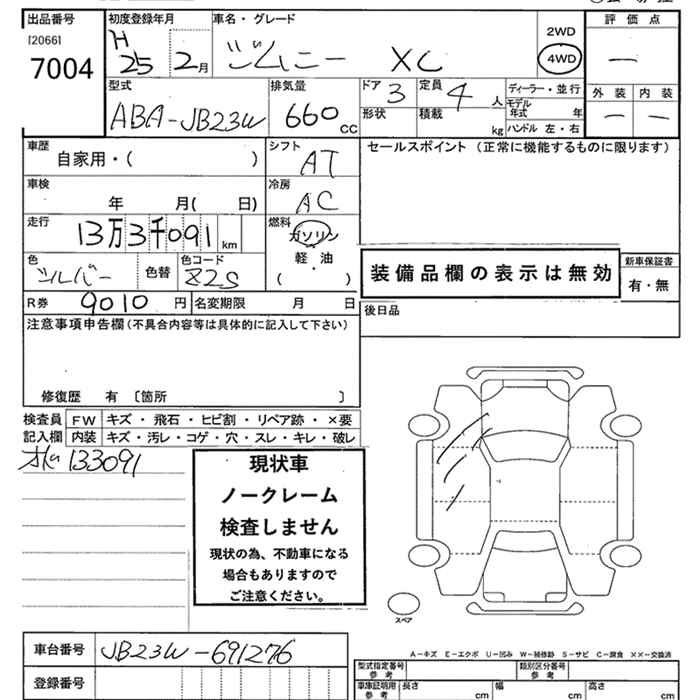 出品番号
[2066]
7004
初度登録年月
H
25 2月
車名・グレード
ジムニー XC
2WD
4WD
評価点
—
外装 内装
— —
型式
ABA-JB23W
排気量
660 CC
ドア 3
形状
定員 4 人
積載 kg
ディーラー・並行
モデル年式 年
ハンドル 左・右
車歴
自家用・( )
シフト
AT
セールスポイント (正常に機能するものに限ります)
車検
年 月( 日)
冷房
AC
走行
13万3千091 km
燃料
ガソリン
軽・油
・
( )
色
シルバー
色替
色コード
Z2S
装備品欄の表示は無効
新車保証書
有・無
R券 9010 円
名変期限 月 日
後日品
注意事項申告欄(不具合内容等は具体的に記入して下さい)
修復歴 有 [箇所 ]
検査員記入欄
FW キズ・飛石・ヒビ割・リペア跡・×要
内装 キズ・汚レ・コゲ・穴・スレ・キレ・破レ
133091
現状車
ノークレーム
検査しません
現状の為、不動車になる
場合もありますので
ご注意ください。
スペア
車台番号 JB23W-691276
登録番号
A-キズ E-エクボ U-凹み W-補修跡 S-サビ C-腐食 ××-交換済
型式指定番号 参考
類別区分番号 参考
車庫証明用 参考
長さ cm
幅 cm
高さ cm